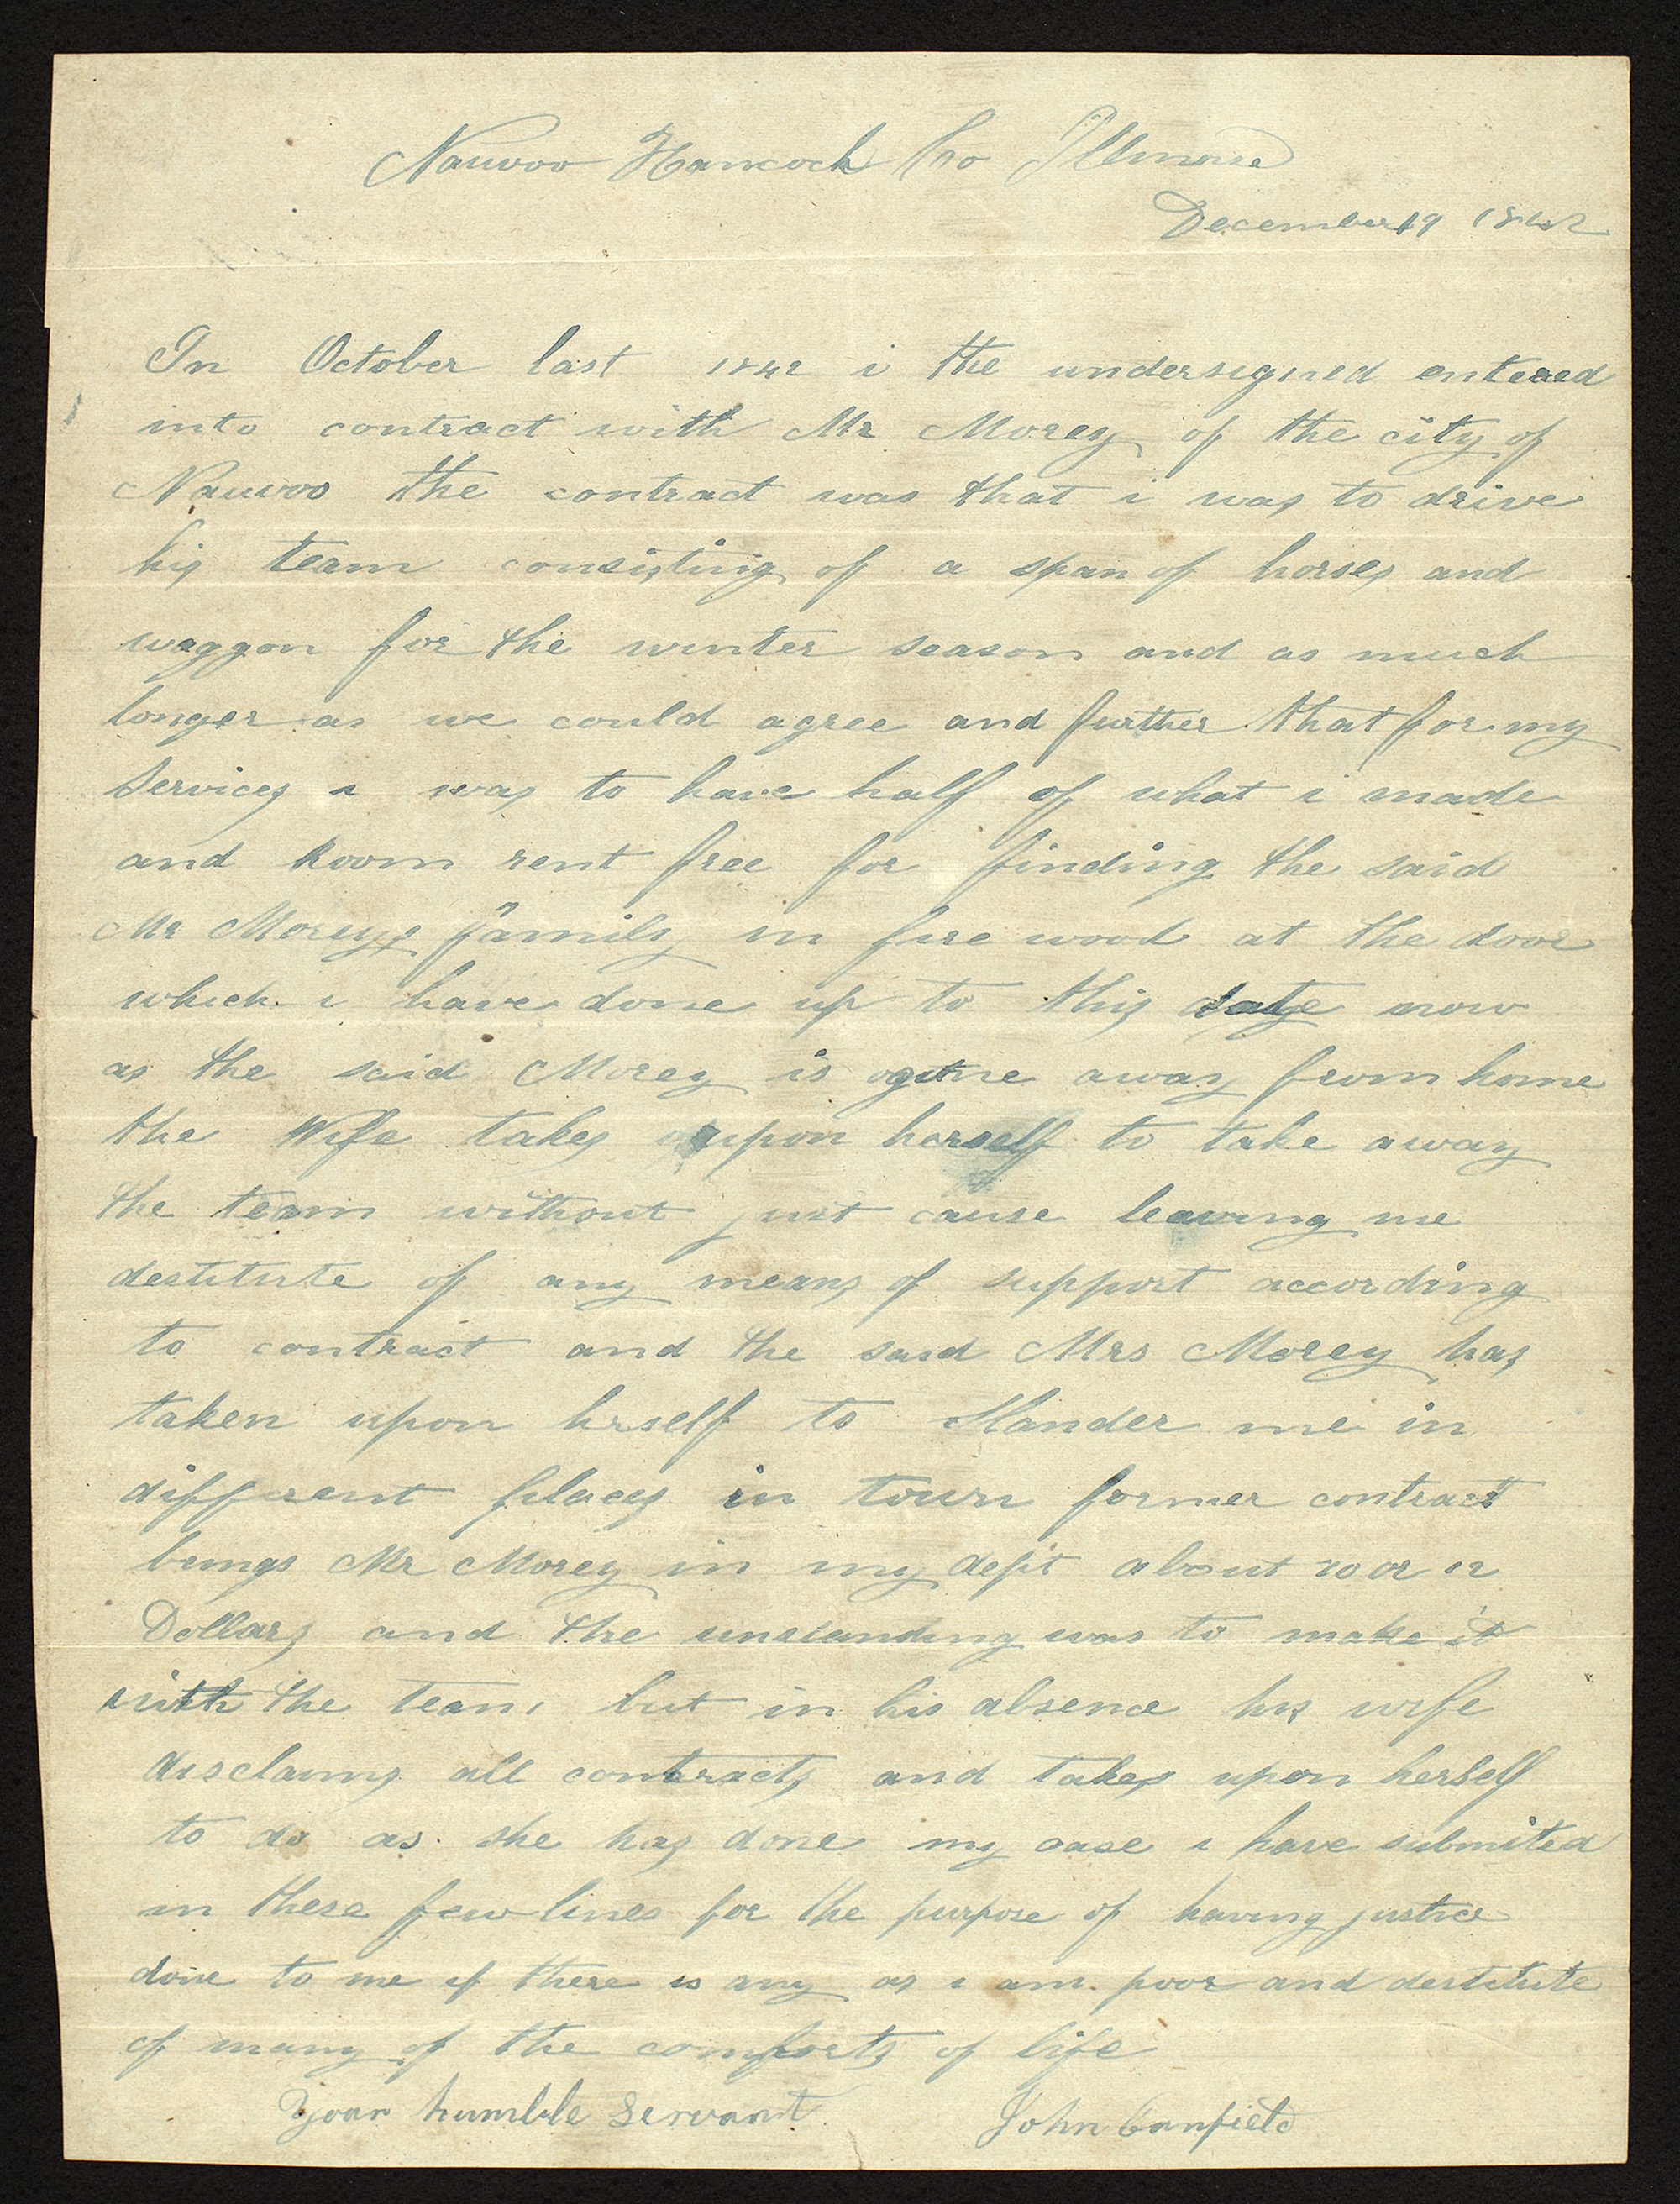 Nauvoo Hancock Co Illinoise
December 19 1842
In October last 1842 i the undersigned entered
into contract with Mr Morey of the city of
Nauvoo the contract was that i was to drive
his team consisting of a span of horses and
waggon for the winter season and as much
longer as we could agree and further that for my
services i was to have half of what i made
and Room rent free for finding the said
Mr Moreys family in fire wood at the door
which i have done up to this date now
as the said Morey is gone away from home
the Wife takes upon herself to take away
the team without just cause leaving me
destitute of any means of support according
to contract and the said Mrs Morey has
taken upon hrself to Slander me in
different places in town former contract
beings Mr Morey in my dept about 10 or 12
Dollars and the was to make it
with the team but in his absence his wife
disclaims all contracts and takes upon herself
to do as she has done my case i have submited
in these few lines for the purpose of having justice
done to me if there is any as i am poor and destitute
of many of the comforts of life
Your humble Servant John Canfield